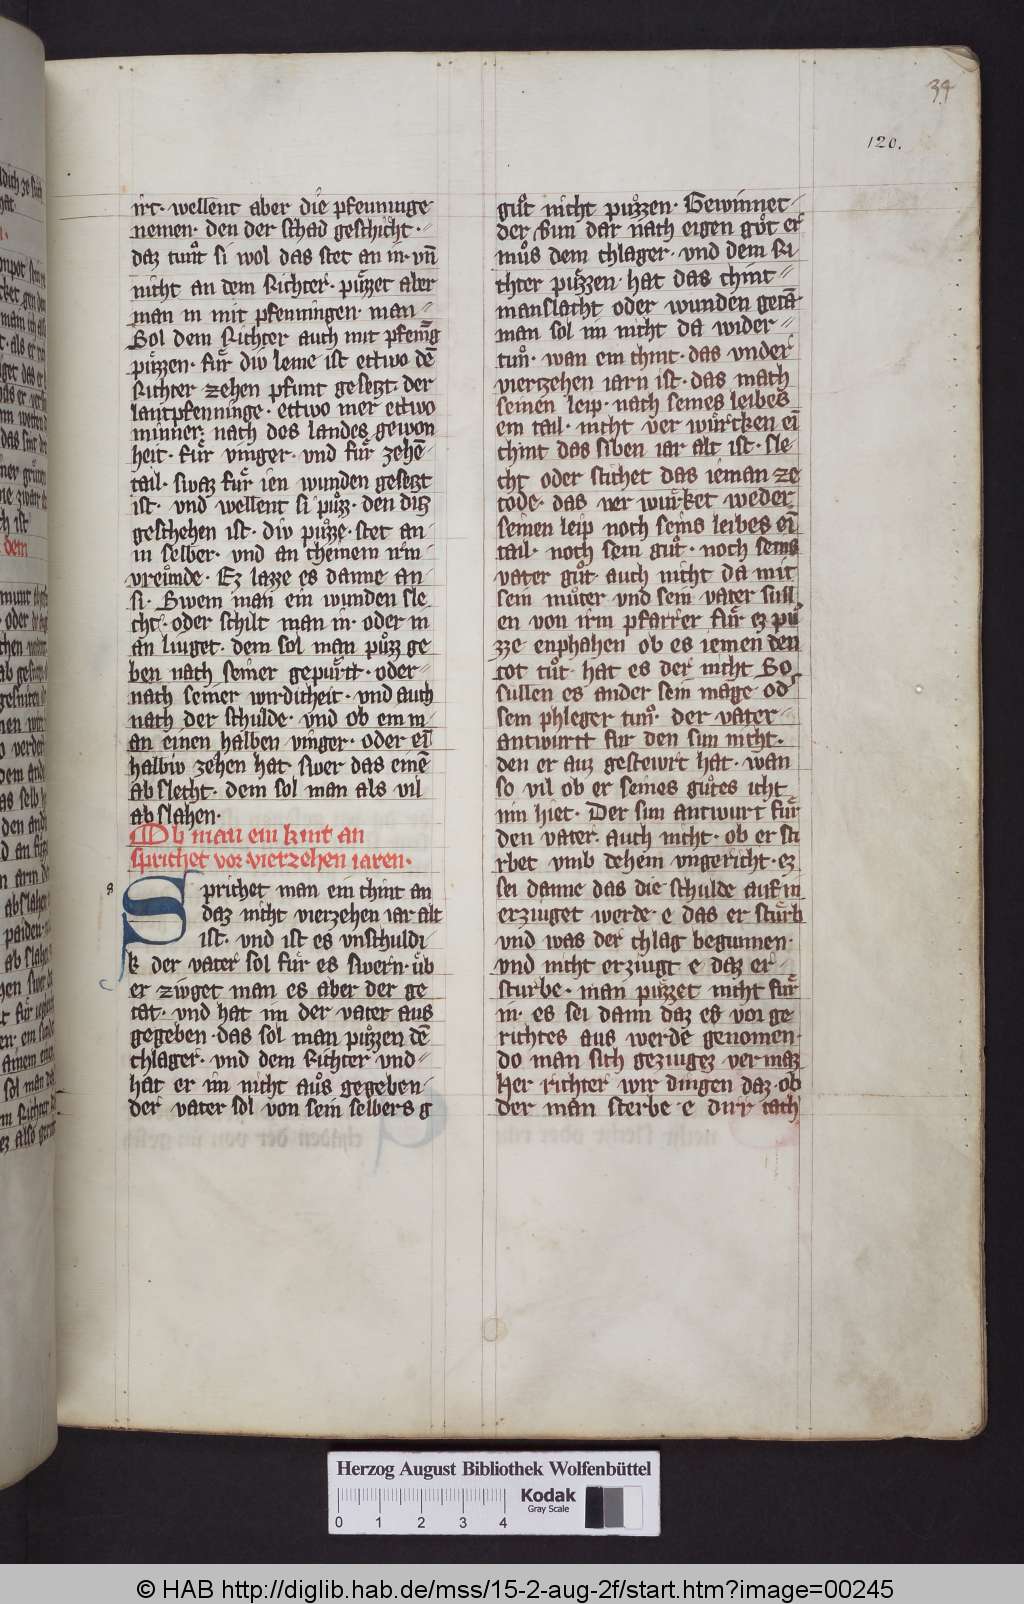 39
120.
irt· wellent aber die pfenninge
nemen· den der schad geschicht·
daz tuͦnt si wol das stet an in· vn̄
nicht an dem Richter· puͤzzet aber
man in mit pfenningen· man
Sol dem Richter auch mit pfenīg
puͤzzen· fuͤr diw leme ist ettwo dē
Richter zehen pfunt gesetzt· der
lantpfenninge· ettwo mer ettwo
minner· nach des landes gewon
heit· fuͤr vinger· vnd fuͤr zehē
tail· swaz fuͤr ien wunden gesetzt
ist· vnd wellent si puͤzz· den ditz
geschehen ist· diw puͤzze· stet an
in selber· vnd an cheinem irm
vreuͤnde· Ez lazze es danne an
si· Swem man ein wunden sle
cht· oder schilt man in· oder in
an liuget· dem sol man puͤzz ge
ben nach seiner gepuͤrtt· oder
nach seiner wirdicheit· vnd auch
nach der schulde· vnd ob ein m
an einen halben vinger· oder eī
halbiv zehen hat swer das einē
ab slecht· dem sol man als vil
ab slahen·
Ob man ein kint an
sprichet vor vietzehen iaren·
8
Sprichet man ein chint an
daz nicht vierzehen iar alt
ist· vnd ist es vnschuldi
k der vater sol fuͤr es swern· uͤb
er ziuget man es aber der ge
tat· vnd hat im der vater aus
gegeben· das sol man puͤzzen dē
chlager· vnd dem Richter vnd
hat er im nicht auͦs gegeben
der vater sol von sein selbers g
guͦt nicht puͤzzen· Gewinnet
der Sun dar nach eigen goͤt er
muͦs dem chlager· vnd dem Ri
chter puͤzzen· hat das chint
manslacht oder wunden getā
man sol im nicht da wider
tuͦn· wan ein chint· das vnder
viertzehen iarn ist· das mach
seinen leip· nach seines leibes
ein tail· nicht ver wuͤrcken eī
chint das siben iar alt ist· sle
cht oder stichet das ieman ze
tode· das ver wuͤrket weder
seinen leip noch seins leibes eī
tail· noch sein guͦt· noch seins
vater guͦt· auch nicht da mit
sein muͦter vnd sein vater sull
en von irm pfarrer fuͤr ez puͦ
zze enphahen ob es iemen den
tot tuͦt· hat es der nicht So
sullen es ander sein mage· od
sein phleger tuͦn· der vater
antwurtt fur den sun nicht·
den er auz gestewrt hat· wan
so vil ob er seines guͦtes icht
inn hiet· Der sun antwurt fuͤr
den vater· auch nicht· ob er sti
rbet vmb dehein vngericht· ez
sei danne das die schulde auf in
erziuget werde· e das er stuͤrb
vnd was der chlag begunnen·
vnd nicht erziugt e daz er
sturbe· man puͤzzet nicht fuͤr
in· es sei dann daz es vor ge
richtes aus werde genomen·
do man sich geziugez vermaz
Her richter wir dingen daz· ob
der man sterbe· e dirr tach
Herzog August Bibliothek Wolfenbüttel
Kodak
Gray Scale
0 1 2 3 4
© HAB http://diglib.hab.de/mss/15-2-aug-2f/start.htm?image=00245